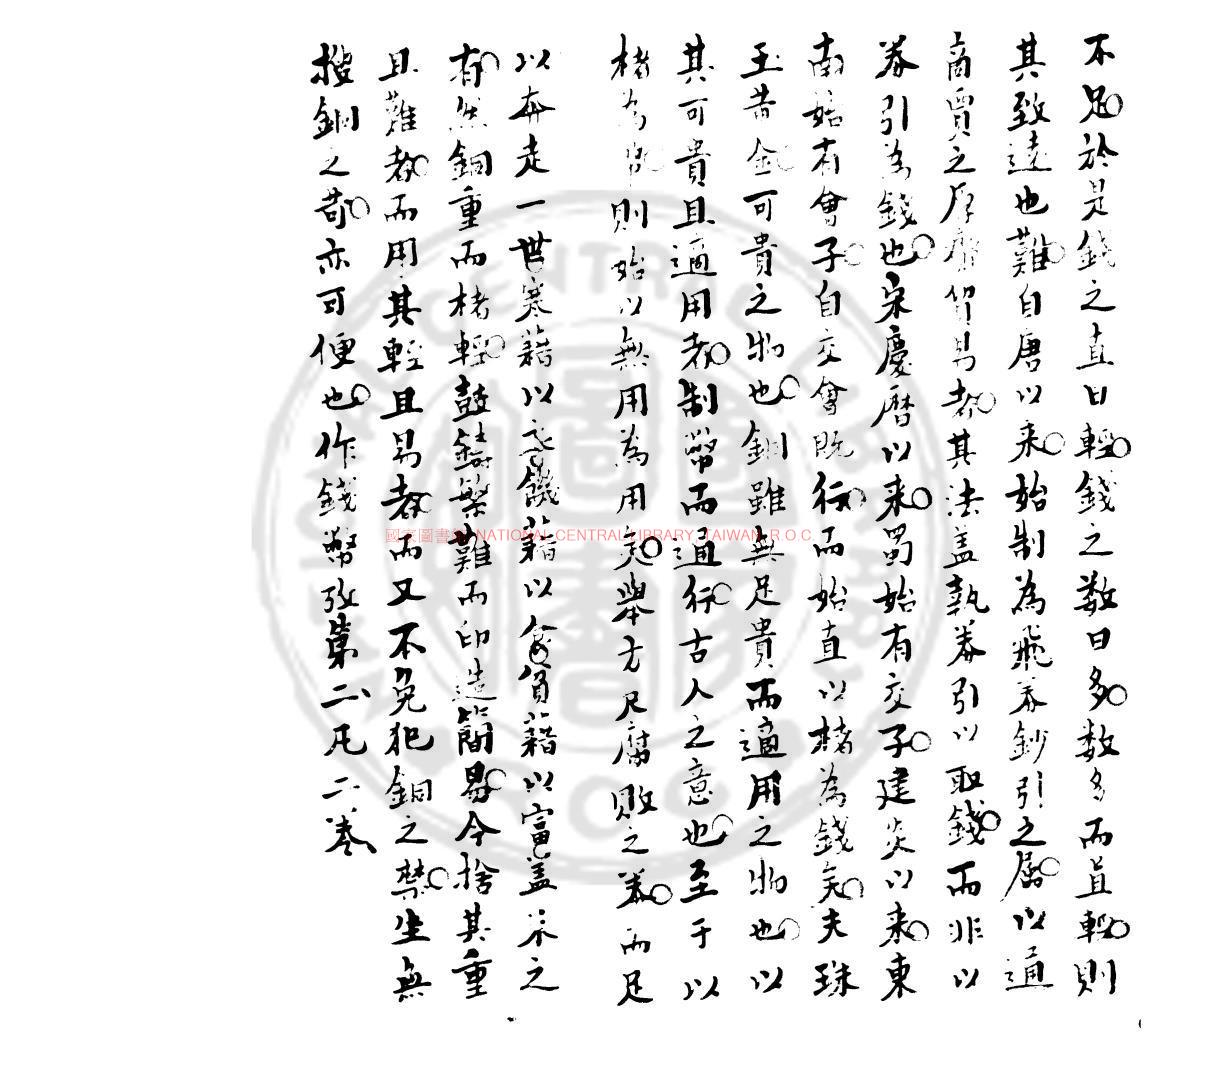 不足於是錢之直日輕錢之数日多数多而直輕則
其致遠也難自唐以来始制為飛券鈔引之屬以通
商賈之厚齎貿易者其法盖執券引以取錢而非以
券引為錢也宋慶曆以来蜀始有交子建炎以来東
南始有會子自交會既行而始直以楮為錢矣夫珠
玉黃金可貴之物也銅雖無足貴而適用之物也以
其可貴且適用者制幣而通行古人之意也至于以
楮為幣則始以無用為用矣舉方尺腐敗之券而足
以奔走一世寒藉以衣饑藉以食貧藉以富盖未之
有然銅重而楮輕鼓鑄繁難而印造簡易今捨其重
且難者而用其輕且易者而又不免犯銅之禁生無
搜銅之苛亦可便也作錢幣攷第二凡二卷
國家圖書館 NATIONAL CENTRAL LIBRARY, TAIWAN, R.O.C.